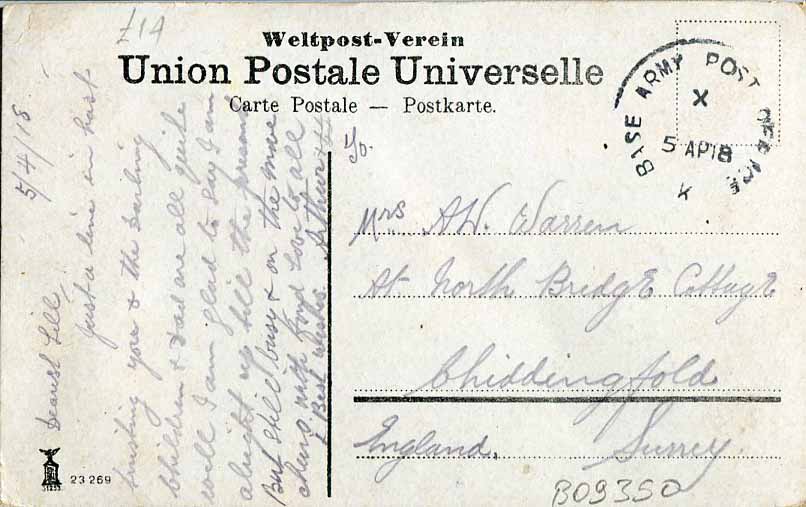 £14
Weltpost-Verein
Union Postale Universelle
Carte Postale — Postkarte.
BASE ARMY POST OFFICE
X
5 AP 18
X
5/4/18
Dearest Lill,
Just a line in hast
trusting you & the darling
children & Dad are all quite
well I am glad to say I am
alright up till the present
But still busy & on the move
chering with fond love to all
& Best wishes. Arthur
To.
Mrs A.W. Warren
At North Bridge Cottage
Chiddingfold
England. Surrey
23269
B09350